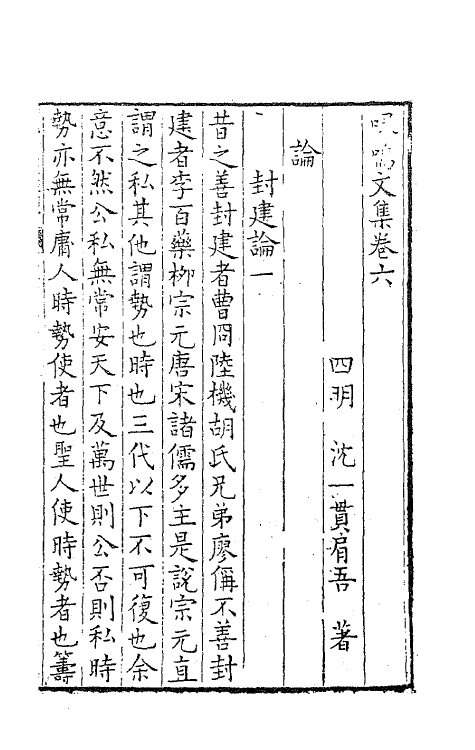 喙鳴文集卷六
四明 沈一貫肩吾 著
論
封建論一
昔之善封建者曹冏陸機胡氏兄弟廖偁不善封
建者李百藥柳宗元唐宋諸儒多主是說宗元直
謂之私其他謂勢也時也三代以下不可復也余
意不然公私無常安天下及萬世則公否則私時
勢亦無常庸人時勢使者也聖人使時勢者也籌